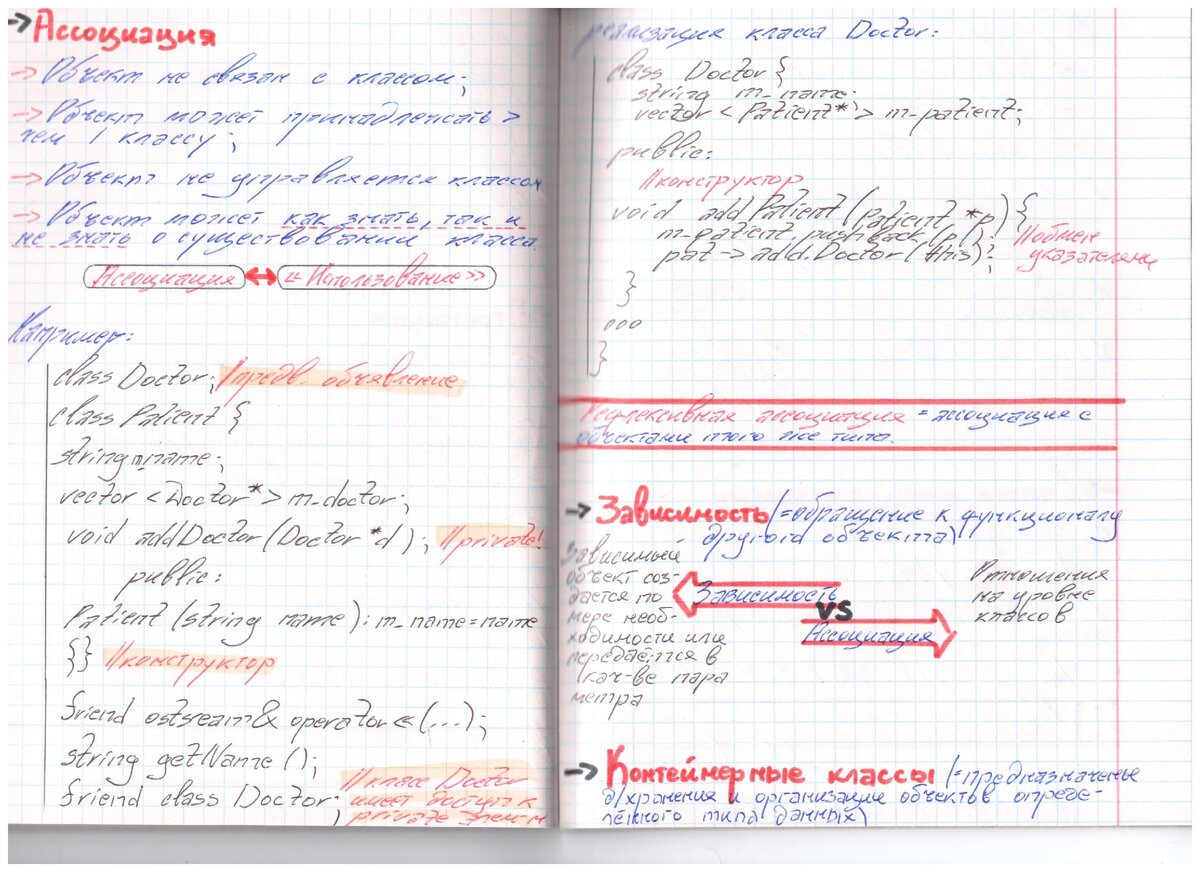 → Ассоциация
→ Объект не связан с классом;
→ Объект может принадлежать >
чем 1 классу;
→ Объект не управляется классом
→ Объект может как знать, так и
не знать о существовании класса.
Ассоциация ↔ «Использование»
Например:
class Doctor; //предв. объявление
class Patient {
string m_name;
vector <Doctor*> m_doctor;
void addDoctor(Doctor *d); //private!
public:
Patient (string name): m_name=name
{} //конструктор
friend ostream& operator<<(...);
string getName ();
friend class Doctor; //класс Doctor
имеет доступ к
private элем-м
реализация класса Doctor:
class Doctor {
string m_name;
vector <Patient*> m_patient;
public:
//конструктор
void addPatient (Patient *p) {
m_patient.pushback(p);
pat -> add.Doctor(this); //обмен
указателями
}
ооо
}
Рефлексивная ассоциация = ассоциация с
объектами того же типа.
→ Зависимость (=обращение к функционалу
другого объекта)
Зависимый
объект соз-
дается по
мере необ-
ходимости или
передаётся в
кач-ве пара
метра
Зависимость
VS
Ассоциация
Отношения
на уровне
классов
→ Контейнерные классы (=предназначенные
д/хранения и организации объектов опреде-
лённого типа данных)